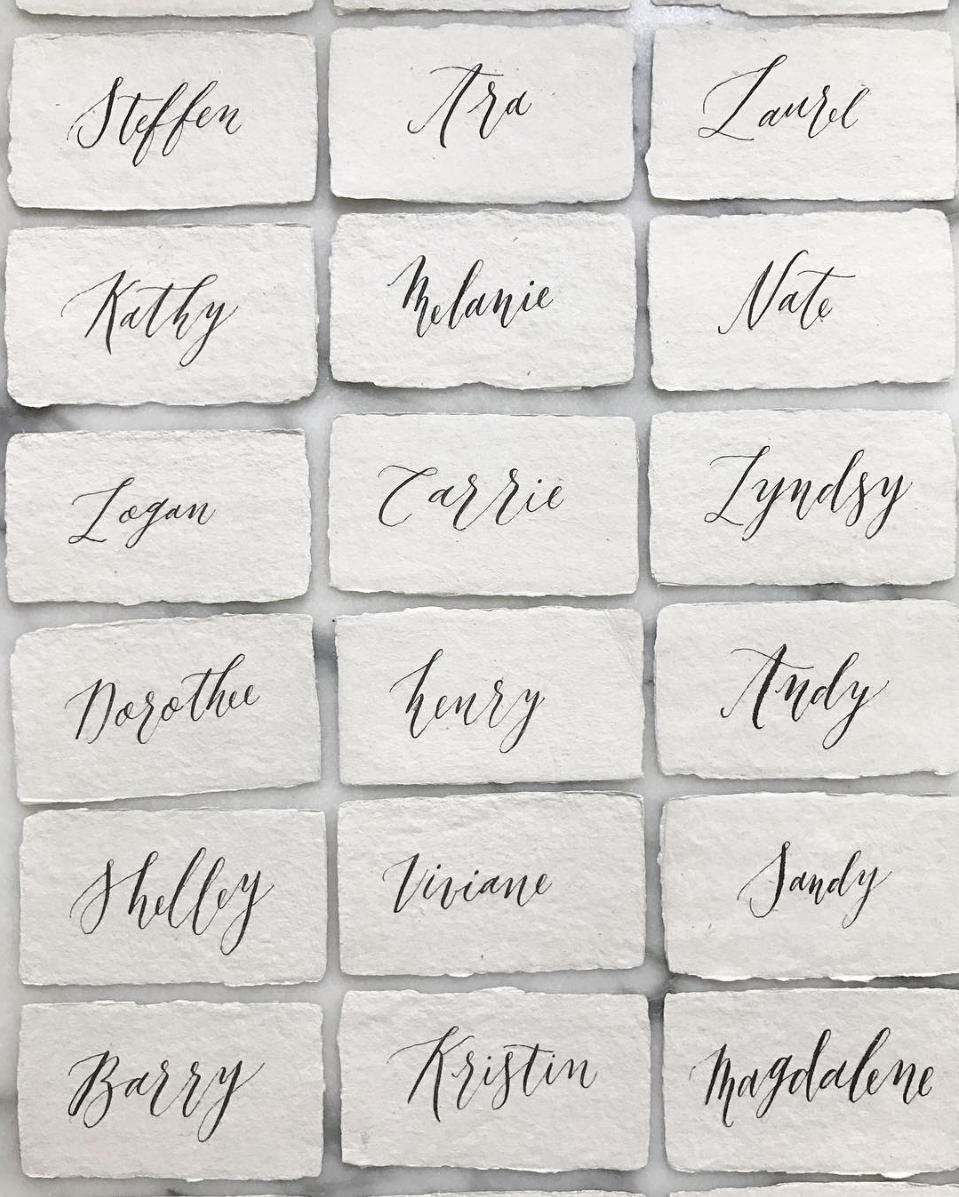 Steffen
Ara
Laurel
Kathy
Melanie
Nate
Logan
Carrie
Lyndsy
Dorothee
henry
Andy
Shelley
Viviane
Sandy
Barry
Kristin
Magdalene